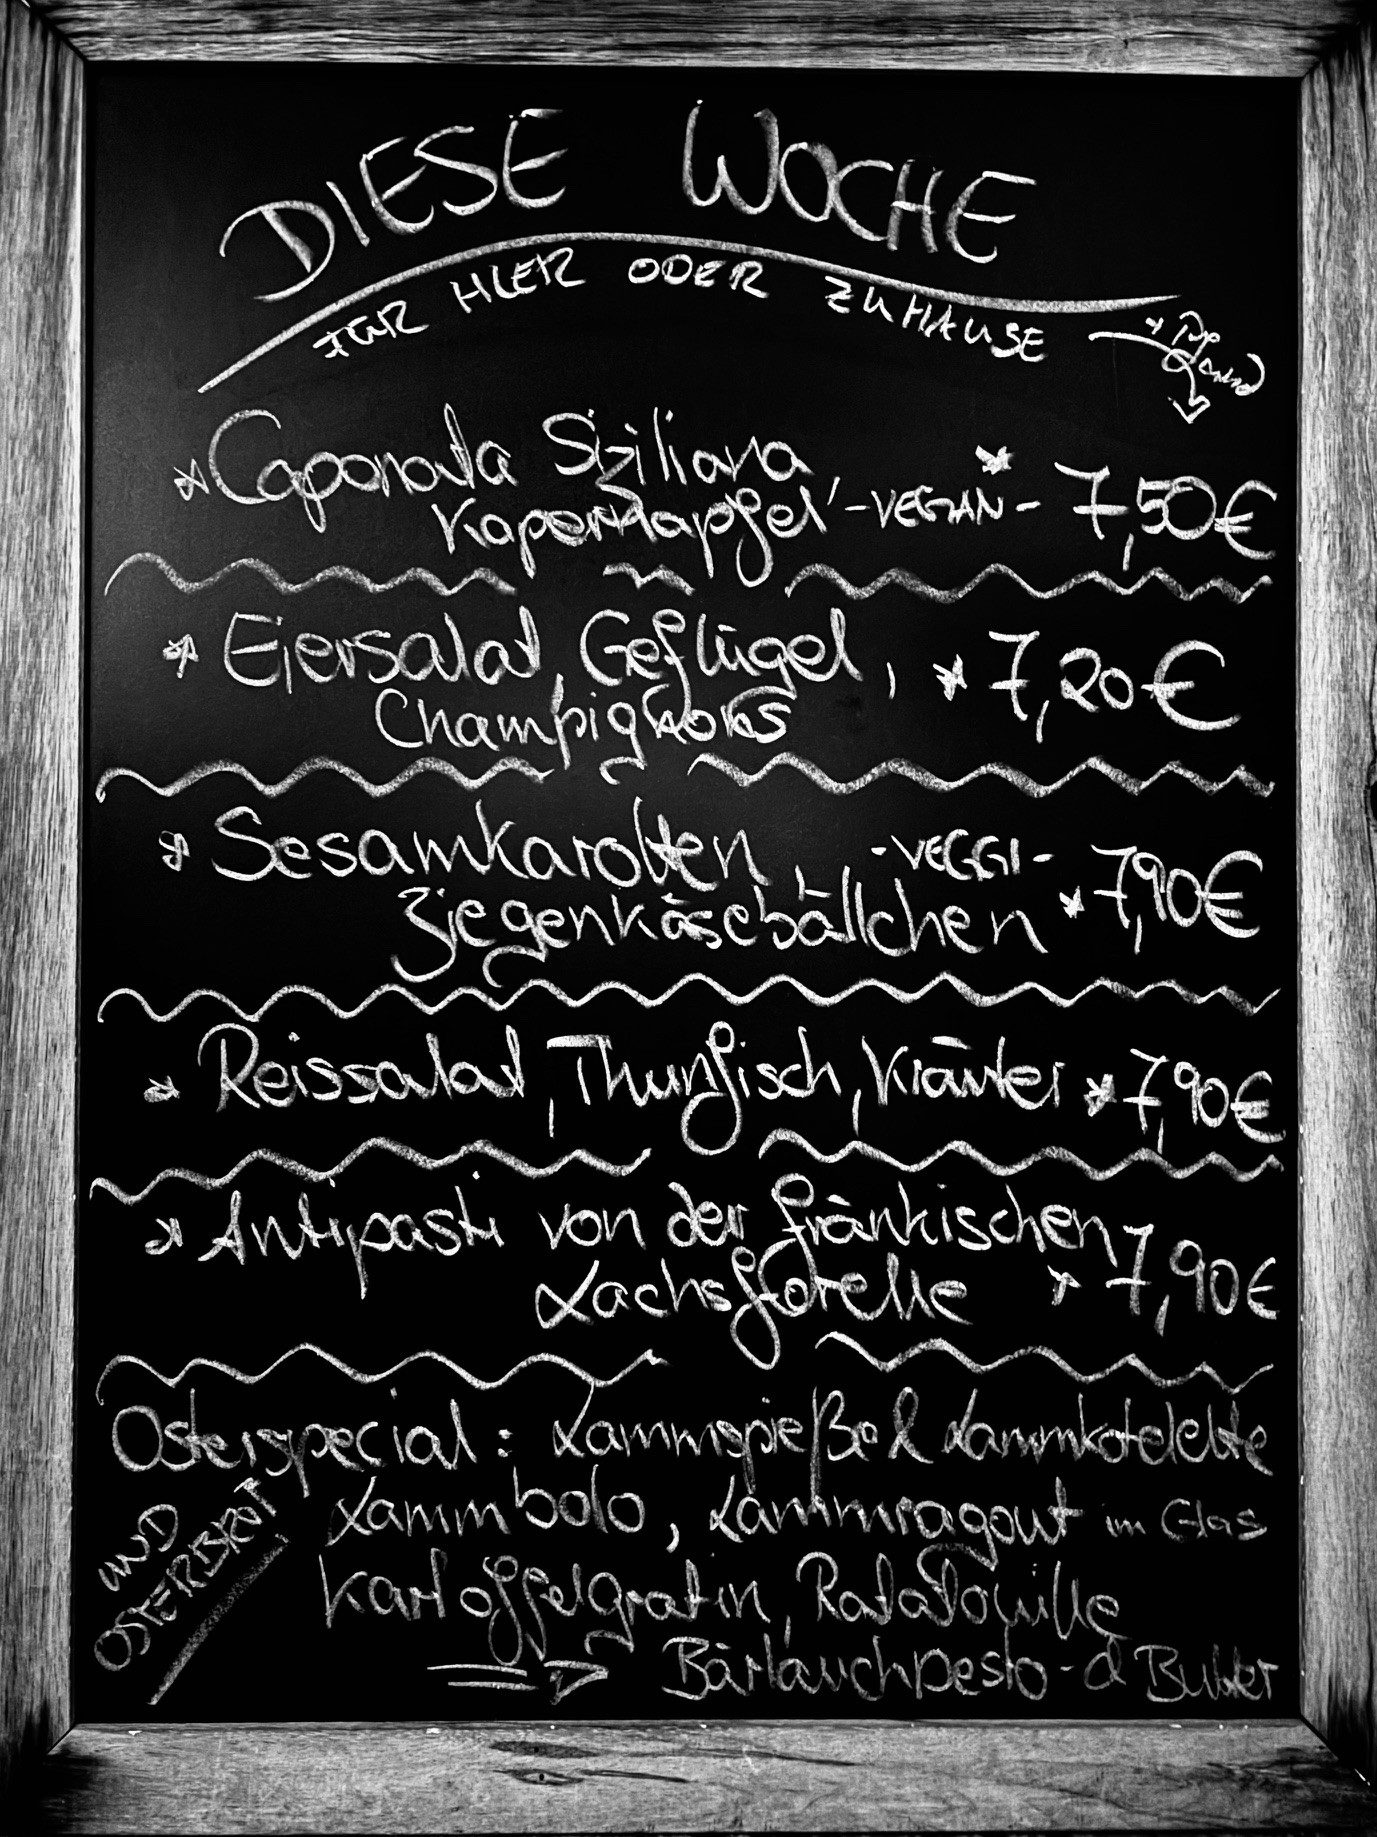 DIESE WOCHE
FÜR HIER ODER ZUHAUSE
+ Pfand
Caponata Siziliana,
Kapernapfel -VEGAN- 7,50€
Eiersalat, Geflügel,
Champignons 7,20€
Sesamkarotten, -VEGGI-
Ziegenkäsebällchen 7,90€
Reissalat, Thunfisch, Kräuter 7,90€
Antipasti von der fränkischen
Lachsforelle 7,90€
Osterspecial: Lammspieße & Lammkotelette
Lammbolo, Lammragout im Glas
Kartoffelgratin, Ratatouille
Bärlauchpesto- & Butter
UND
OSTERBROT